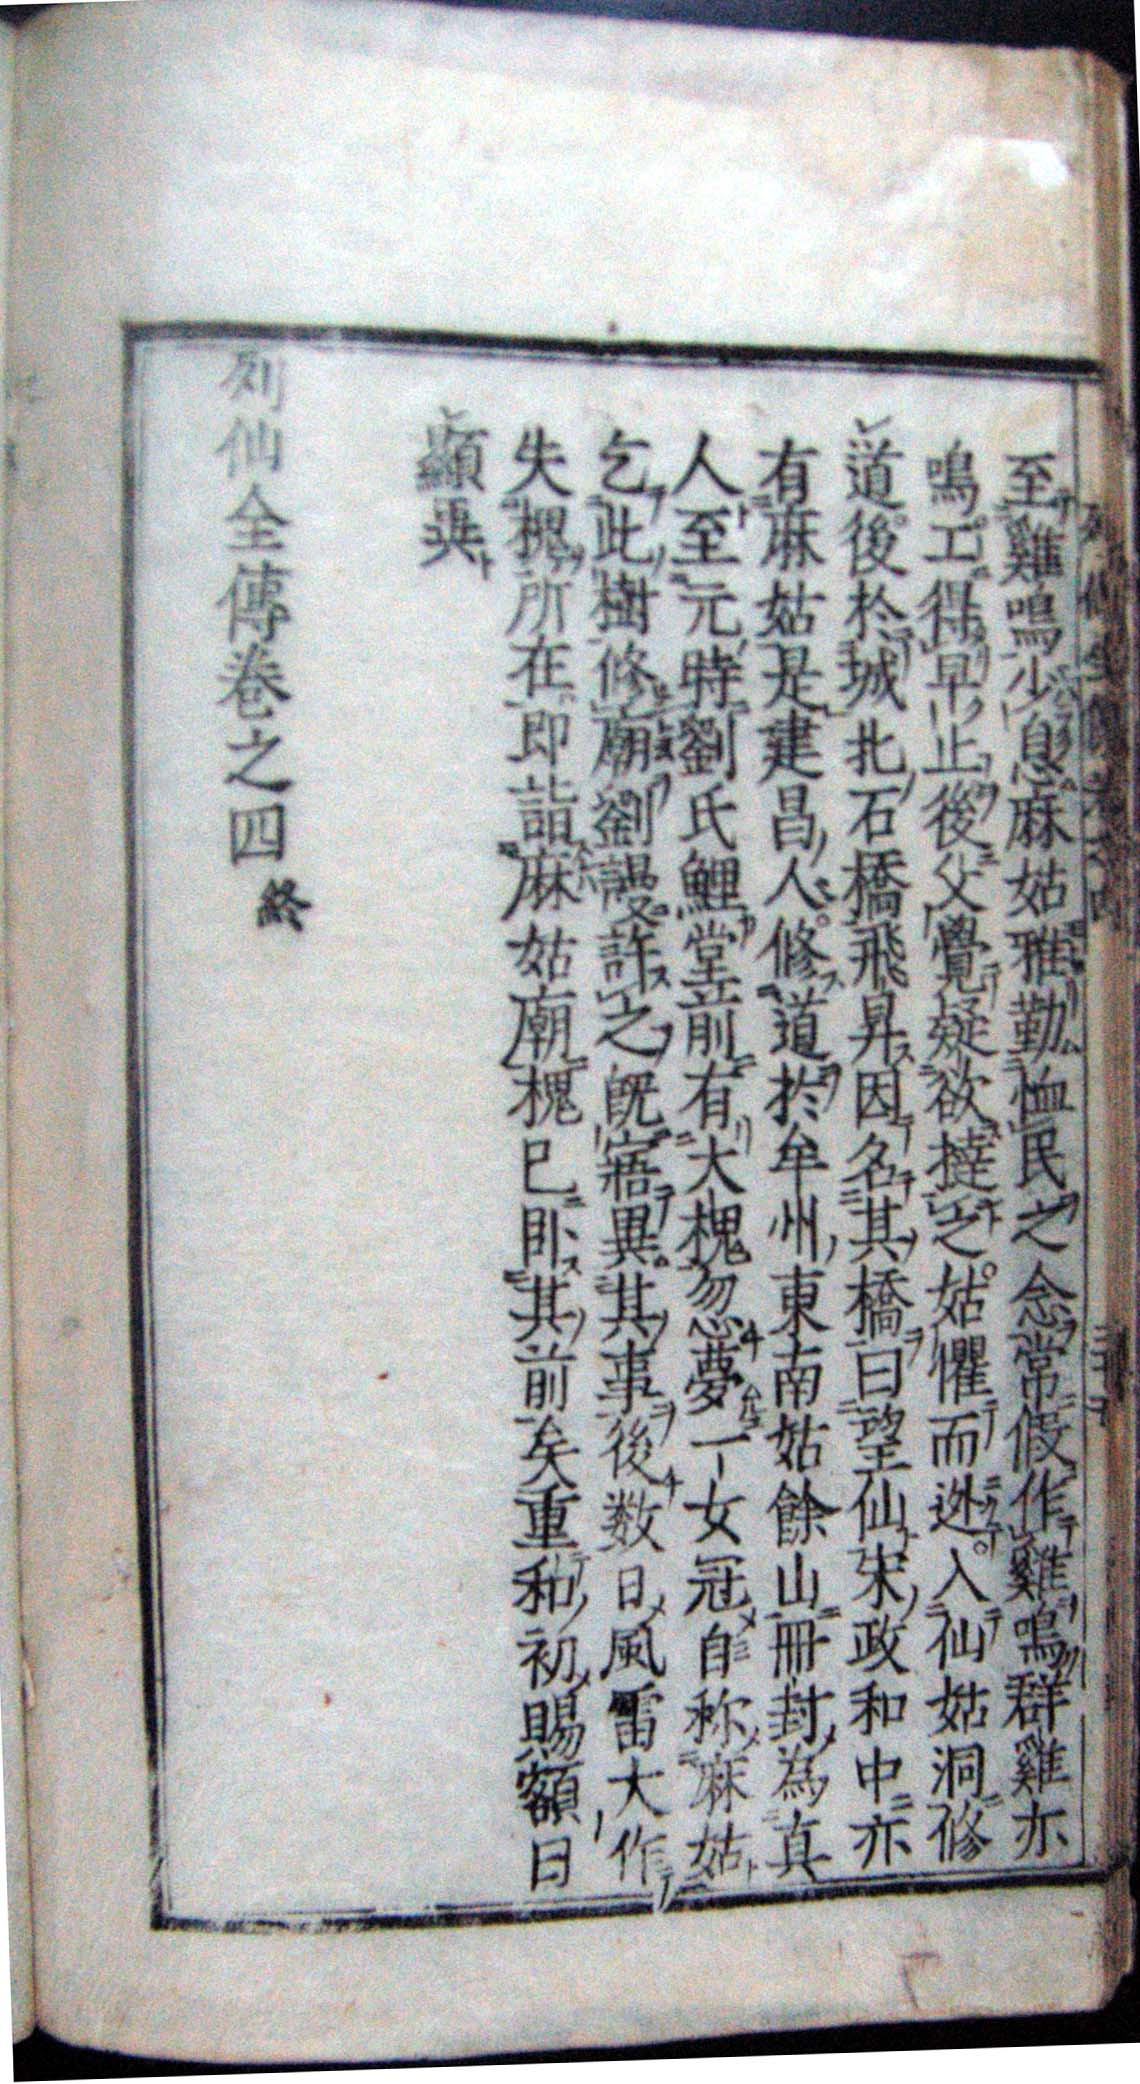 至雞鳴少息麻姑雅勤恤民之念常假作雞鳴群雞亦
鳴工得早止後父覺疑欲撻之姑懼而迯入仙姑洞修
道後於城北石橋飛昇因名其橋曰望仙宋政和中亦
有麻姑是建昌人修道於牟州東南姑餘山冊封為真
人至元時劉氏鯉堂前有大槐忽夢一女冠自称麻姑
乞此樹修廟劉謾許之既寤異其事後数日風雷大作
失槐所在即詣麻姑廟槐已卧其前矣重和初賜額曰
顯異
列仙全傳卷之四終